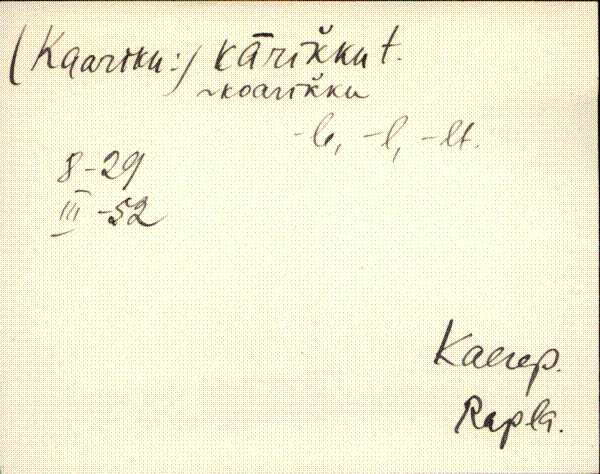 (Kaariku:) kārik̆ku t.
~koarik̆ku
-le, -l, -lt.
8-29
III -52
Kaerep.
Rapla.